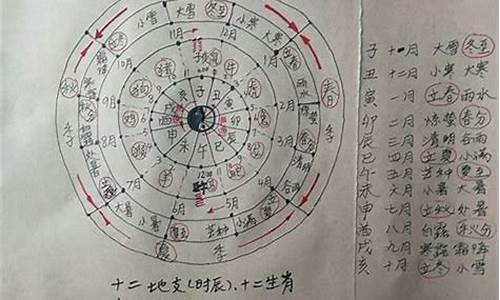 小雪 大雪 冬至 小寒 大寒
11月 12月 1月
立冬 立春
霜降 10月 子 2月 雨水
猪 鼠 牛
狗 亥 丑 虎
秋 秋分 9月 戌 寅 惊蛰 春
鸡 酉 卯 兔 3月 春分
季 白露 申 辰 季
处暑 8月 未 午 巳 4月 清明
羊 谷雨
立秋 7月 6月 5月 立夏
大暑 小暑 夏至 芒种 小满
夏 季
子 十一月 大雪 冬至
丑 十二月 小寒 大寒
寅 一月 立春 雨水
卯 二月 惊蛰 春分
辰 三月 清明 谷雨
巳 四月 立夏 小满
午 五月 芒种 夏至
未 六月 小暑 大暑
申 七月 立秋 处暑
酉 八月 白露 秋分
戌 九月 寒露 霜降
亥 十月 立冬 小雪
十二地支(时辰)、十二生肖